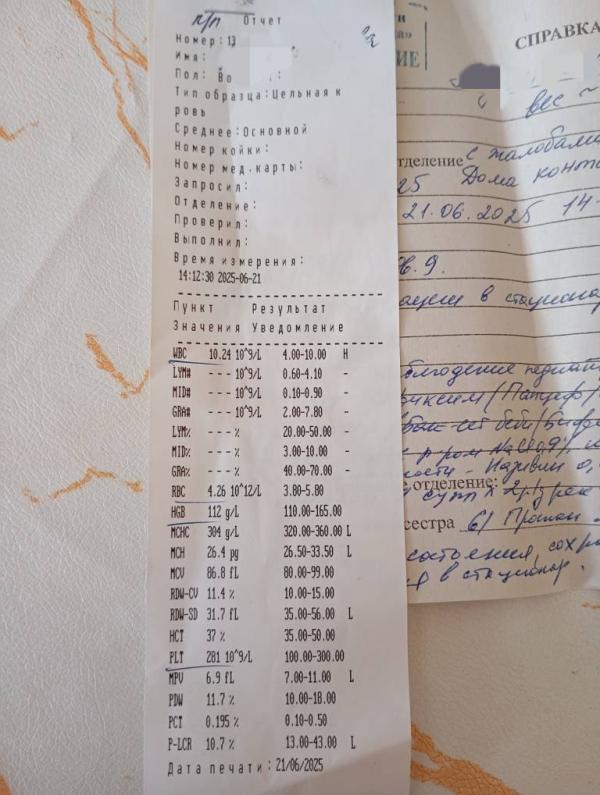 п/п Отчет
Номер: 13
Имя:
Пол: Во
Тип образца: Цельная к
ровь
Среднее: Основной
Номер койки:
Номер мед.карты:
Запросил:
Отделение:
Проверил:
Выполнил:
Время измерения:
14:12:30 2025-06-21
Пункт Результат
Значения Уведомление
WBC 10.24 10^9/L 4.00-10.00 H
LYM# --- 10^9/L 0.60-4.10 -
MID# --- 10^9/L 0.10-0.90 -
GRA# --- 10^9/L 2.00-7.80 -
LYM% --- % 20.00-50.00 -
MID% --- % 3.00-10.00 -
GRA% --- % 40.00-70.00 -
RBC 4.26 10^12/L 3.80-5.80
HGB 112 g/L 110.00-165.00
MCHC 304 g/L 320.00-360.00 L
MCH 26.4 pg 26.50-33.50 L
MCV 86.8 fL 80.00-99.00
RDW-CV 11.4 % 10.00-15.00
RDW-SD 31.7 fL 35.00-56.00 L
HCT 37 % 35.00-50.00
PLT 281 10^9/L 100.00-300.00
MPV 6.9 fL 7.00-11.00 L
PDW 11.7 % 10.00-18.00
PCT 0.195 % 0.10-0.50
P-LCR 10.7 % 13.00-43.00 L
Дата печати: 21/06/2025
СПРАВКА
вес ~
отделение с жалобами
25 Дома
21.06.2025 14-
в стационар
отделение:
сестра 6)
состояния, сохра
в стационар.